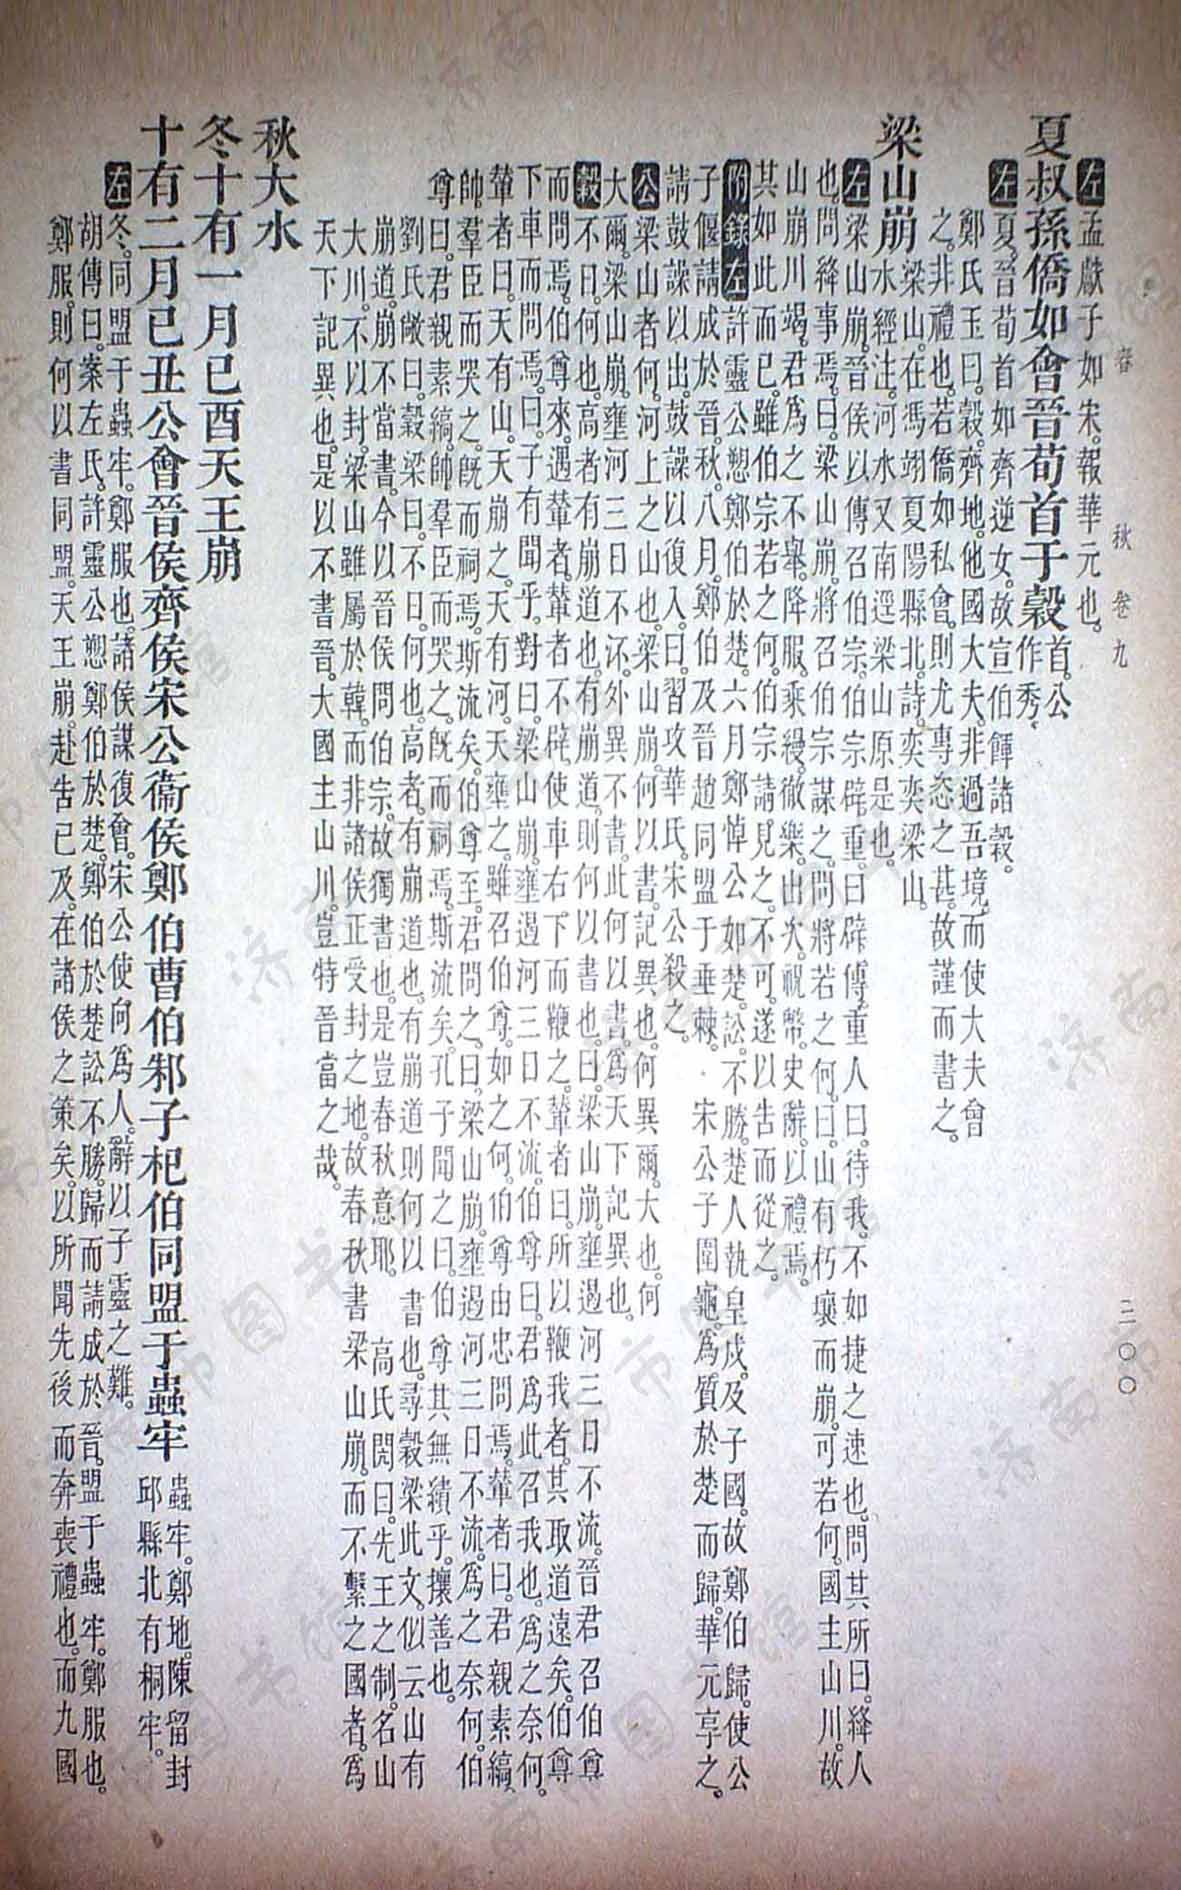 春 秋 卷九 二〇〇
左 孟獻子如宋。報華元也。
夏叔孫僑如會晉荀首于穀 首。公作秀。
左 夏。晉荀首如齊逆女。故宣伯餫諸穀。
鄭氏玉曰。穀。齊地。他國大夫。非過吾境。而使大夫會
之。非禮也。若僑如私會。則尤專恣之甚。故謹而書之。
梁山崩 梁山。在馮翊夏陽縣北。詩。奕奕梁山。
水經注。河水又南逕梁山原是也。
左 梁山崩。晉侯以傳召伯宗。伯宗辟重。曰辟傳。重人曰。待我。不如捷之速也。問其所。曰。絳人
也。問絳事焉。曰。梁山崩。將召伯宗謀之。問將若之何。曰。山有朽壤而崩。可若何。國主山川。故
山崩川竭。君為之不舉。降服。乘縵。徹樂。出次。祝幣。史辭。以禮焉。
其如此而已。雖伯宗若之何。伯宗請見之。不可。遂以告而從之。
附錄左 許靈公愬鄭伯於楚。六月鄭悼公如楚。訟。不勝。楚人執皇戍。及子國。故鄭伯歸。使公
子偃請成於晉。秋。八月。鄭伯及晉趙同盟于垂棘。 宋公子圍龜。為質於楚而歸。華元享之。
請鼓譟以出。鼓譟以復入。曰。習攻華氏。宋公殺之。
公 梁山者何。河上之山也。梁山崩。何以書。記異也。何異爾。大也。何
大爾。梁山崩。壅河三日不沠。外異不書。此何以書。為天下記異也。
穀 不日。何也。高者有崩道也。有崩道。則何以書也。曰。梁山崩。壅遏河三日不流。晉君召伯尊
而問焉。伯尊來。遇輦者。輦者不辟。使車右下而鞭之。輦者曰。所以鞭我者。其取道遠矣。伯尊
下車而問焉。曰。子有聞乎。對曰。梁山崩。壅遏河三日不流。伯尊曰。君為此召我也。為之奈何。
輦者曰。天有山。天崩之。天有河。天壅之。雖召伯尊。如之何。伯尊由忠問焉。輦者曰。君親素縞。
帥羣臣而哭之。旣而祠焉。斯流矣。伯尊至。君問之。曰。梁山崩。壅遏河三日不流。為之奈何。伯
尊曰。君親素縞。帥羣臣而哭之。旣而祠焉。斯流矣。孔子聞之曰。伯尊其無績乎。攘善也。
劉氏敞曰。穀梁曰。不日。何也。高者。有崩道也。有崩道則何以書也。尋穀梁此文。似云山有
崩道。崩不當書。今以晉侯問伯宗。故獨書也。是豈春秋意耶。 高氏閌曰。先王之制。名山
大川。不以封。梁山雖屬於韓。而非諸侯正受封之地。故春秋書梁山崩。而不繫之國者。為
天下記異也。是以不書晉。大國主山川。豈特晉當之哉。
秋大水
冬十有一月己酉天王崩
十有二月己丑公會晉侯齊侯宋公衞侯鄭伯曹伯邾子杞伯同盟于蟲牢 蟲牢。鄭地。陳留封邱縣北有桐牢。
左 冬。同盟于蟲牢。鄭服也。諸侯謀復會。宋公使向為人。辭以子靈之難。
胡傳曰。案左氏。許靈公愬鄭伯於楚。鄭伯於楚訟不勝。歸而請成於晉。盟于蟲牢。鄭服也。
鄭服。則何以書同盟。天王崩。赴告已及。在諸侯之策矣。以所聞先後而奔喪禮也。而九國